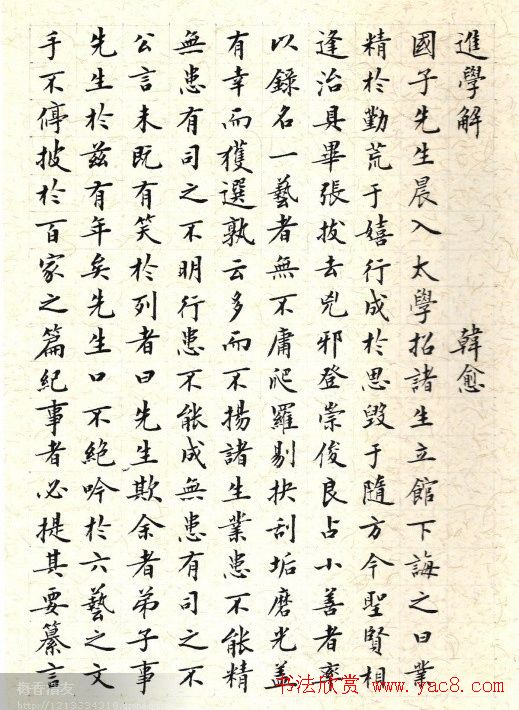 進學解 韓愈
國子先生晨入太學招諸生立館下誨之曰業
精於勤荒于嬉行成於思毀于隨方今聖賢相
逢治具畢張拔去兇邪登崇俊良占小善者率
以錄名一藝者無不庸爬羅剔抉刮垢磨光蓋
有幸而獲選孰云多而不揚諸生業患不能精
無患有司之不明行患不能成無患有司之不
公言未既有笑於列者曰先生欺余者弟子事
先生於茲有年矣先生口不絕吟於六藝之文
手不停披於百家之篇紀事者必提其要纂言
书法欣赏 www.yac8.com